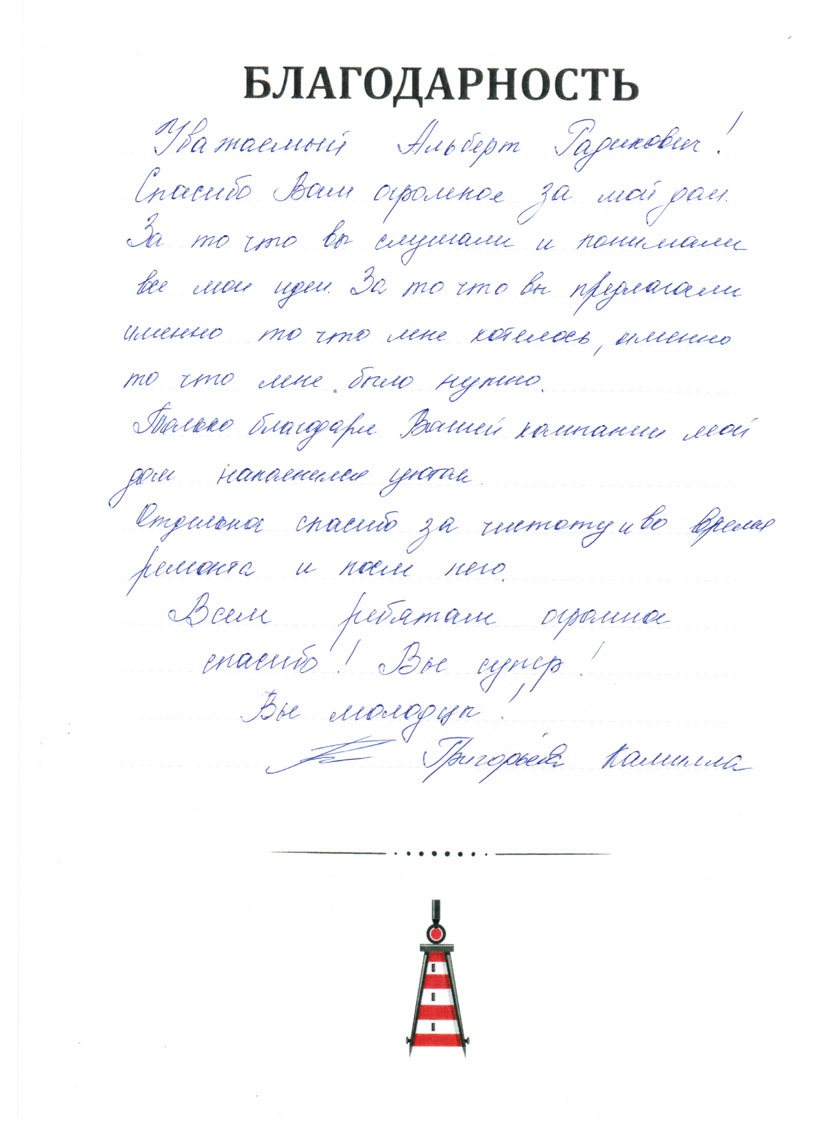 БЛАГОДАРНОСТЬ
Уважаемый Альберт Радикович!
Спасибо Вам огромное за мой дом.
За то что вы слушали и понимали
все мои идеи. За то что вы предлагали
именно то что мне хотелось, именно
то что мне было нужно.
Только благодаря Вашей компании мой
дом наполнился уютом.
Отдельное спасибо за чистоту и во время
ремонта и после него.
Всем ребятам огромное
спасибо! Вы супер!
Вы молодцы!
Григорьева Камилла